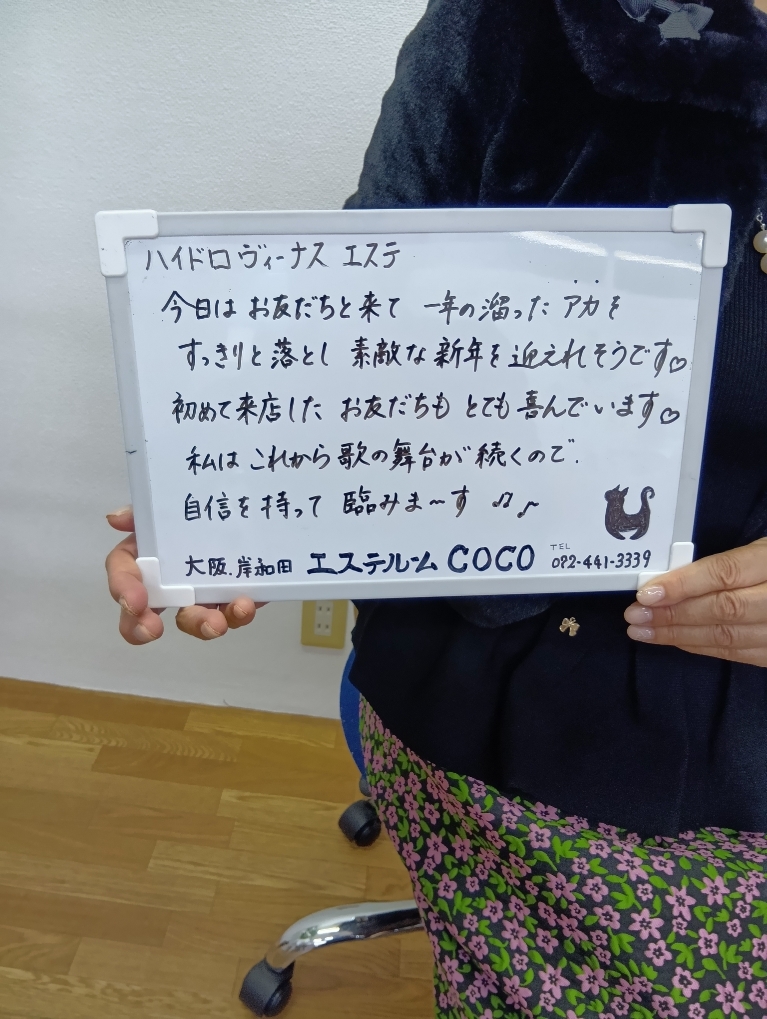 ハイドロヴィーナス エステ
今日は お友だちと来て 一年の溜ったアカを
すっきりと落とし 素敵な新年を迎えれそうです♡
初めて来店した お友だちも とても喜んでいます♡
私は これから歌の舞台が続くので、
自信を持って 臨みま〜す ♫♪
大阪.岸和田 エステルーム COCO TEL 072-441-3339